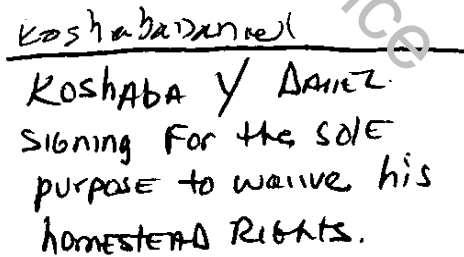 Koshaba Daniel
KoshAbA Y DANIEL
SIGNING For the SolE
purposE to waiive his
homESTEAD RIGHTS.